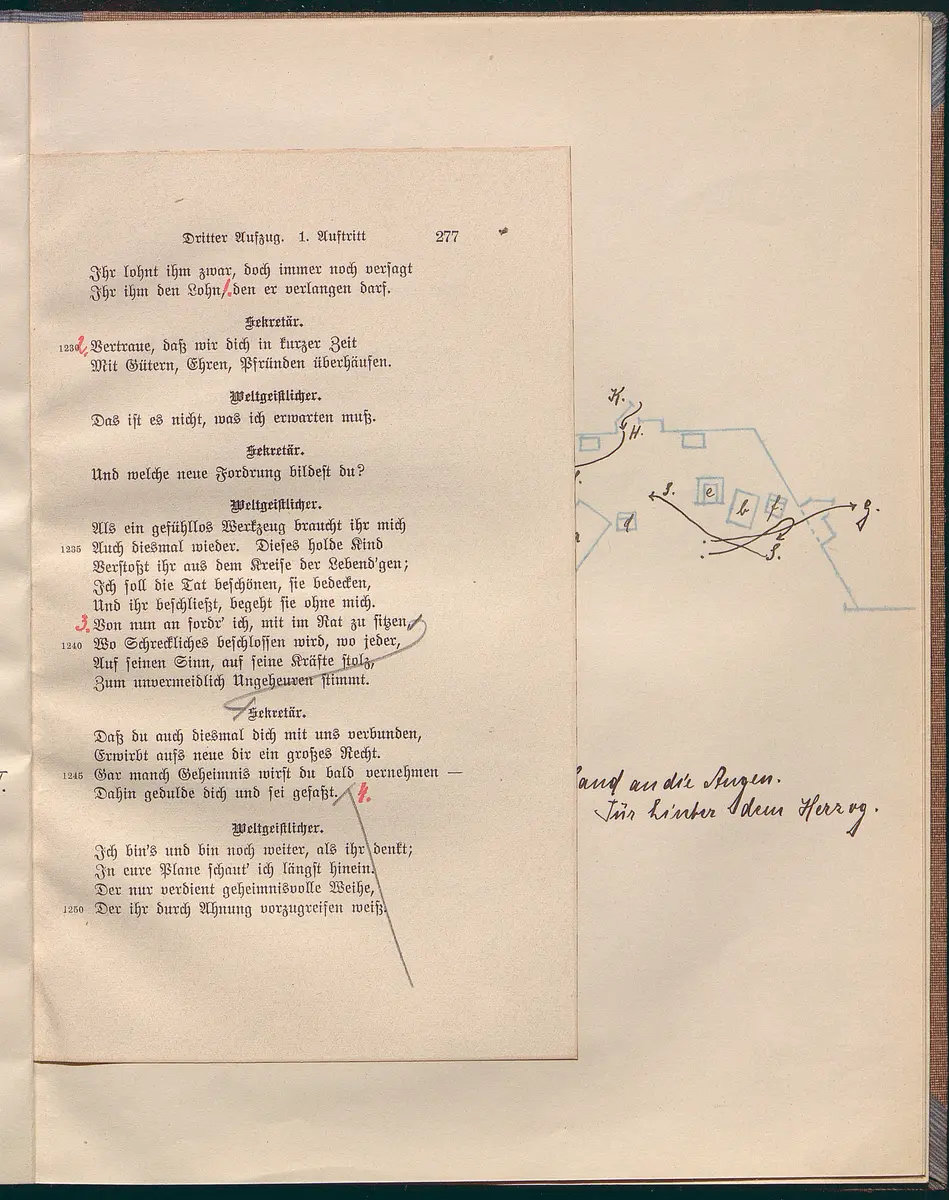 Dritter Aufzug. 1. Auftritt 277
Ihr lohnt ihm zwar, doch immer noch versagt
Ihr ihm den Lohn, 1. den er verlangen darf.
Sekretär.
1230 2. Vertraue, daß wir dich in kurzer Zeit
Mit Gütern, Ehren, Pfründen überhäufen.
Weltgeistlicher.
Das ist es nicht, was ich erwarten muß.
Sekretär.
Und welche neue Fordrung bildest du?
Weltgeistlicher.
Als ein gefühllos Werkzeug braucht ihr mich
1235 Auch diesmal wieder. Dieses holde Kind
Verstoßt ihr aus dem Kreise der Lebend'gen;
Ich soll die Tat beschönen, sie bedecken,
Und ihr beschließt, begeht sie ohne mich.
3. Von nun an fordr' ich, mit im Rat zu sitzen,
1240 Wo Schreckliches beschlossen wird, wo jeder,
Auf seinen Sinn, auf seine Kräfte stolz,
Zum unvermeidlich Ungeheuren stimmt.
Sekretär.
Daß du auch diesmal dich mit uns verbunden,
Erwirbt aufs neue dir ein großes Recht.
1245 Gar manch Geheimnis wirst du bald vernehmen —
Dahin gedulde dich und sei gefaßt. 4.
Weltgeistlicher.
Ich bin's und bin noch weiter, als ihr denkt;
In eure Plane schaut' ich längst hinein.
Der nur verdient geheimnisvolle Weihe,
1250 Der ihr durch Ahnung vorzugreifen weiß.
K.
H.
3. e b f. g.
d
S.
and an die Augen.
Tür hinter dem Herzog.